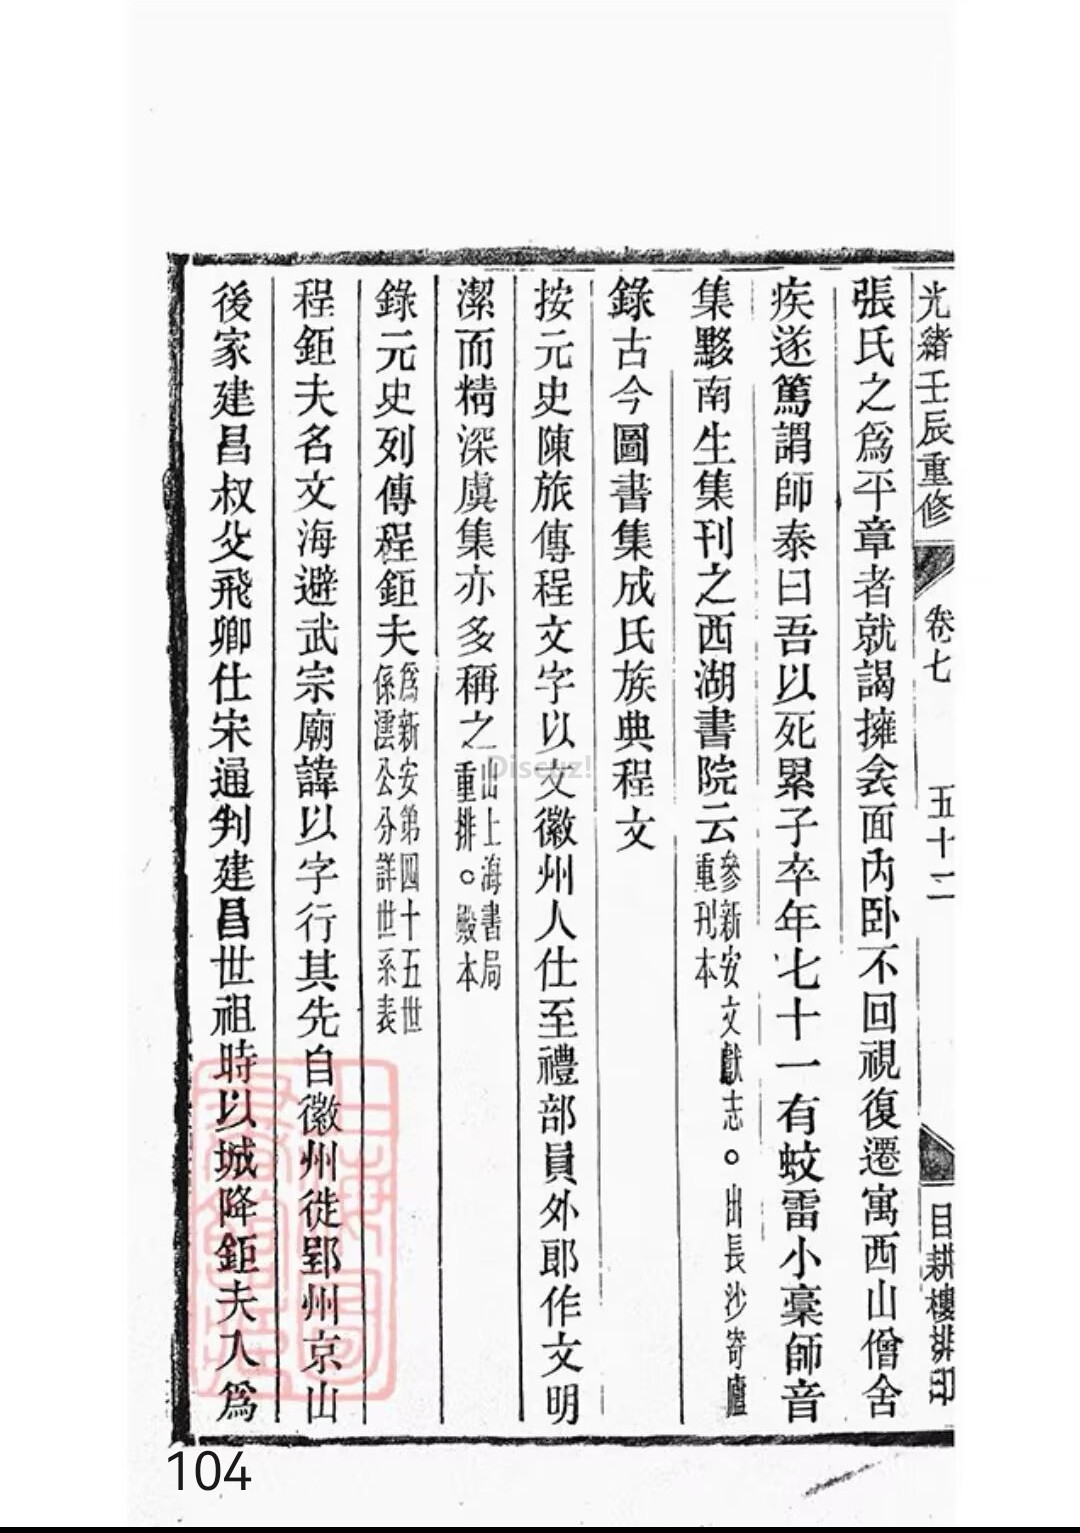 光緒壬辰重修 卷七 五十二 目耕樓排印
張氏之爲平章者就謁擁衾面內卧不回視復遷寓西山僧舍
疾遂篤謂師泰曰吾以死累子卒年七十一有蚊雷小稾師音
集黟南生集刊之西湖書院云參新安文獻志。出長沙寄廬重刊本
錄古今圖書集成氏族典程文
按元史陳旅傳程文字以文徽州人仕至禮部員外郎作文明
潔而精深虞集亦多稱之出上海書局重排。殿本
錄元史列傳程鉅夫爲新安第四十五世係澐公分詳世系表
程鉅夫名文海避武宗廟諱以字行其先自徽州徙郢州京山
後家建昌叔父飛卿仕宋通判建昌世祖時以城降鉅夫入爲
上海圖書館藏
Discuz!
104